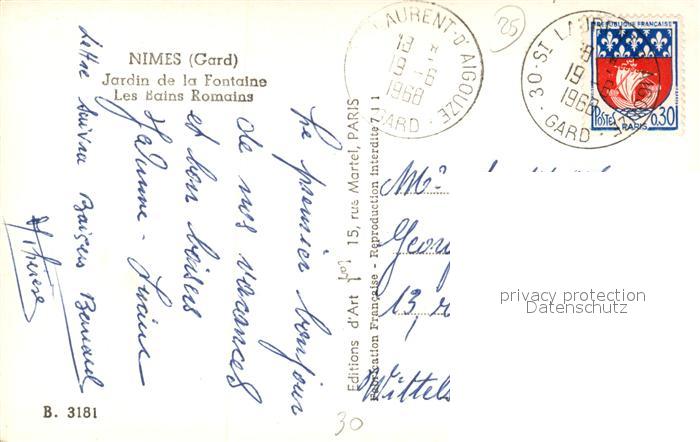 NIMES (Gard)
Jardin de la Fontaine
Les Bains Romains
Le premier bonjour
de nos vacances
et bon baisers
Lettre suivra Baisers Bernard
Thérèse
B. 3181
Editions d'Art
15, rue Martel, PARIS
Fabrication Française - Reproduction interdite 711
LAURENT-D'AIGOUZE
18 H
19 -6
1968
GARD
25
30 - ST LAURENT
19
1968
GARD
REPUBLIQUE FRANÇAISE
POSTES
0,30
PARIS
Mr
Georg
13, r
Wittels
privacy protection
Datenschutz
30